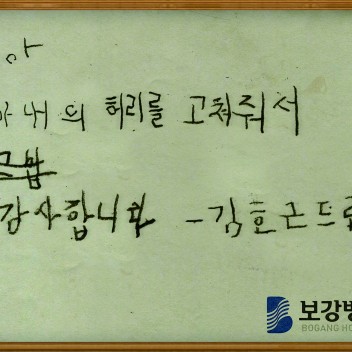 아내의 허리를 고쳐줘서
고맙
감사합니다 -김호근드림
보강병
BOGANG HO